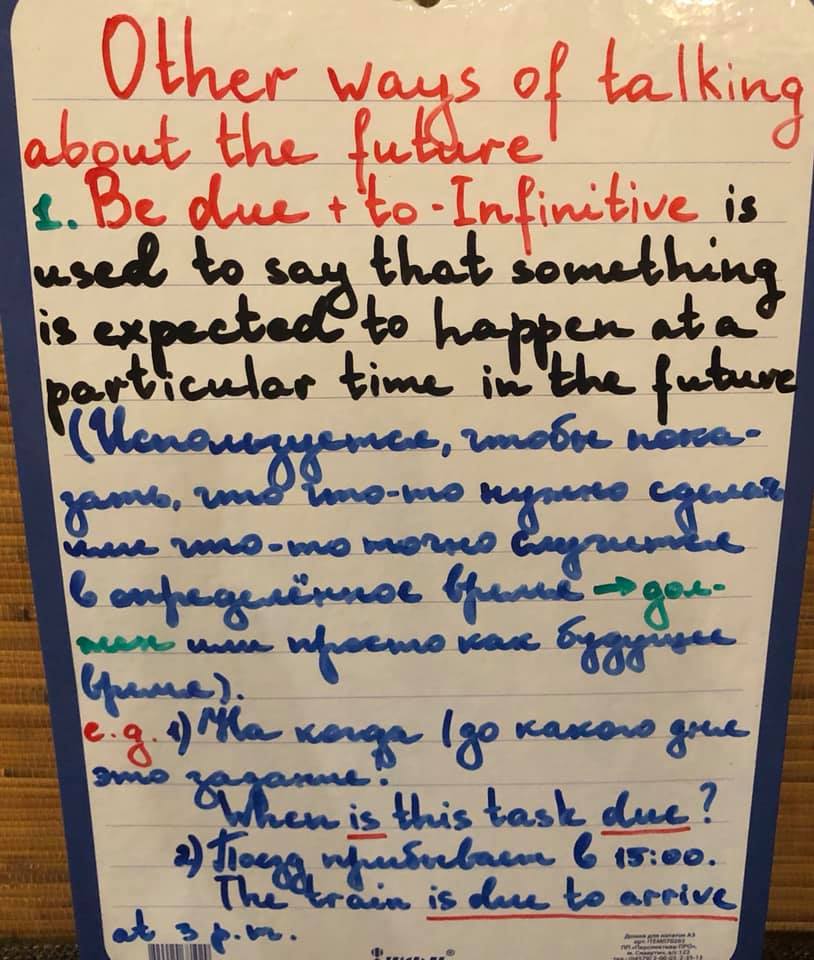 Other ways of talking
about the future
1. Be due + to-Infinitive is
used to say that something
is expected to happen at a
particular time in the future
(Используется, чтобы пока-
зать, что что-то нужно сделать
или что-то точно случится
в определённое время → дол-
жен или просто как будущее
время).
e.g. 1) На когда / до какого дня
это задание?
When is this task due?
2) Поезд прибывает в 15:00.
The train is due to arrive
at 3 p.m.
Дошка для нотаток А3
ПП «Перспектива ПРО»,